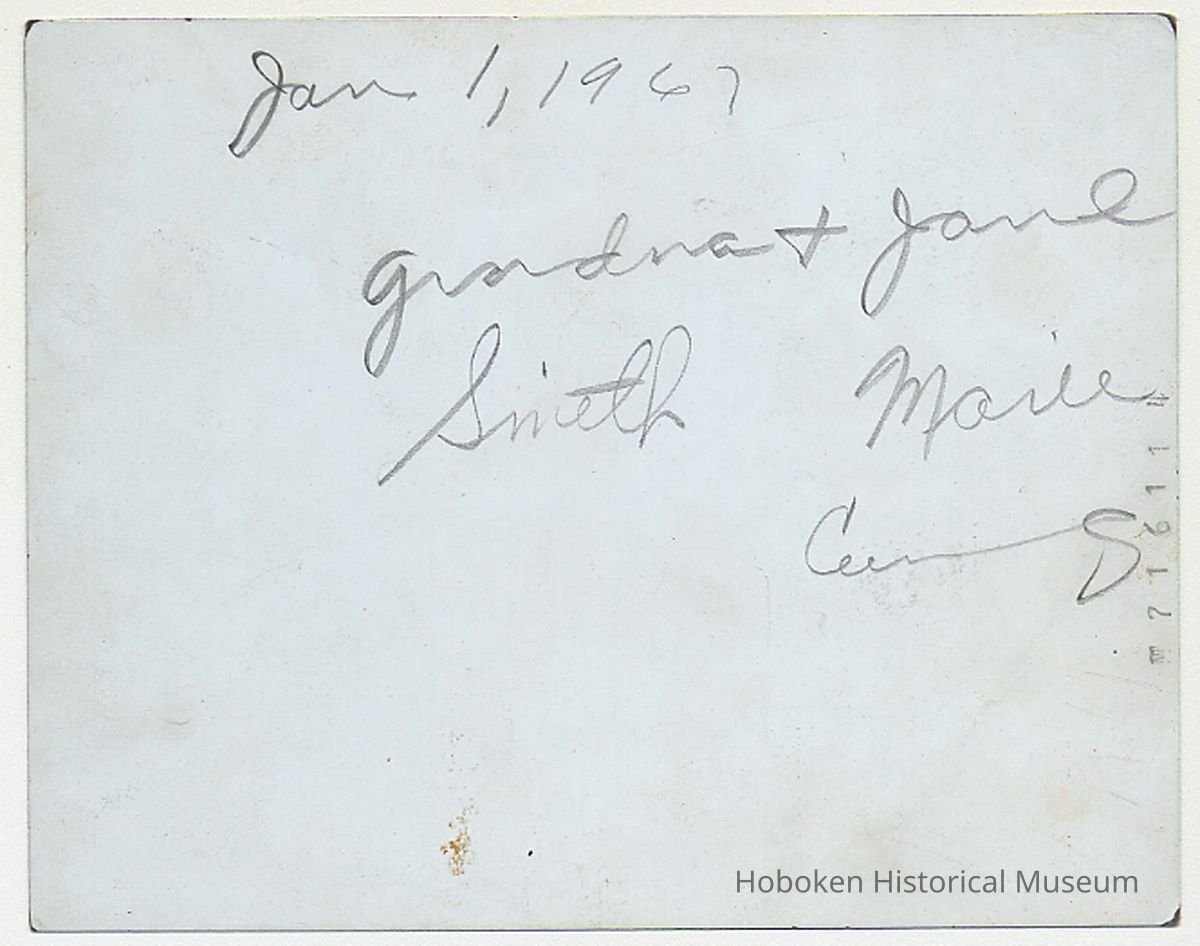 Jan 1, 1967
Grandma + Jane
Smith Marie
m 7 1 6 1 1 N
Hoboken Historical Museum